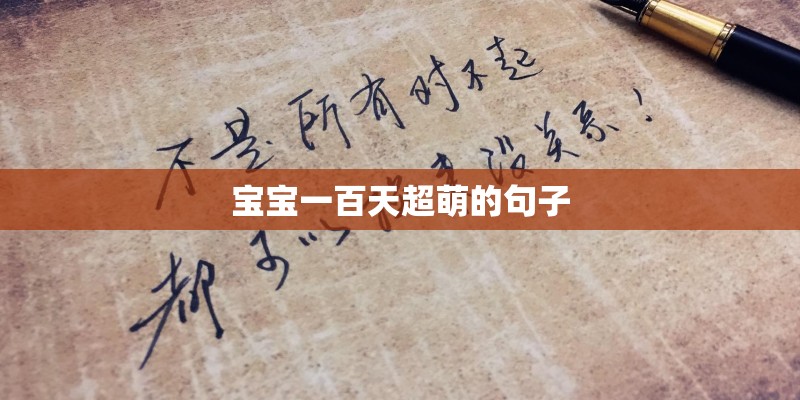 不是所有对不起
宝宝一百天超萌的句子
都可以没关系！